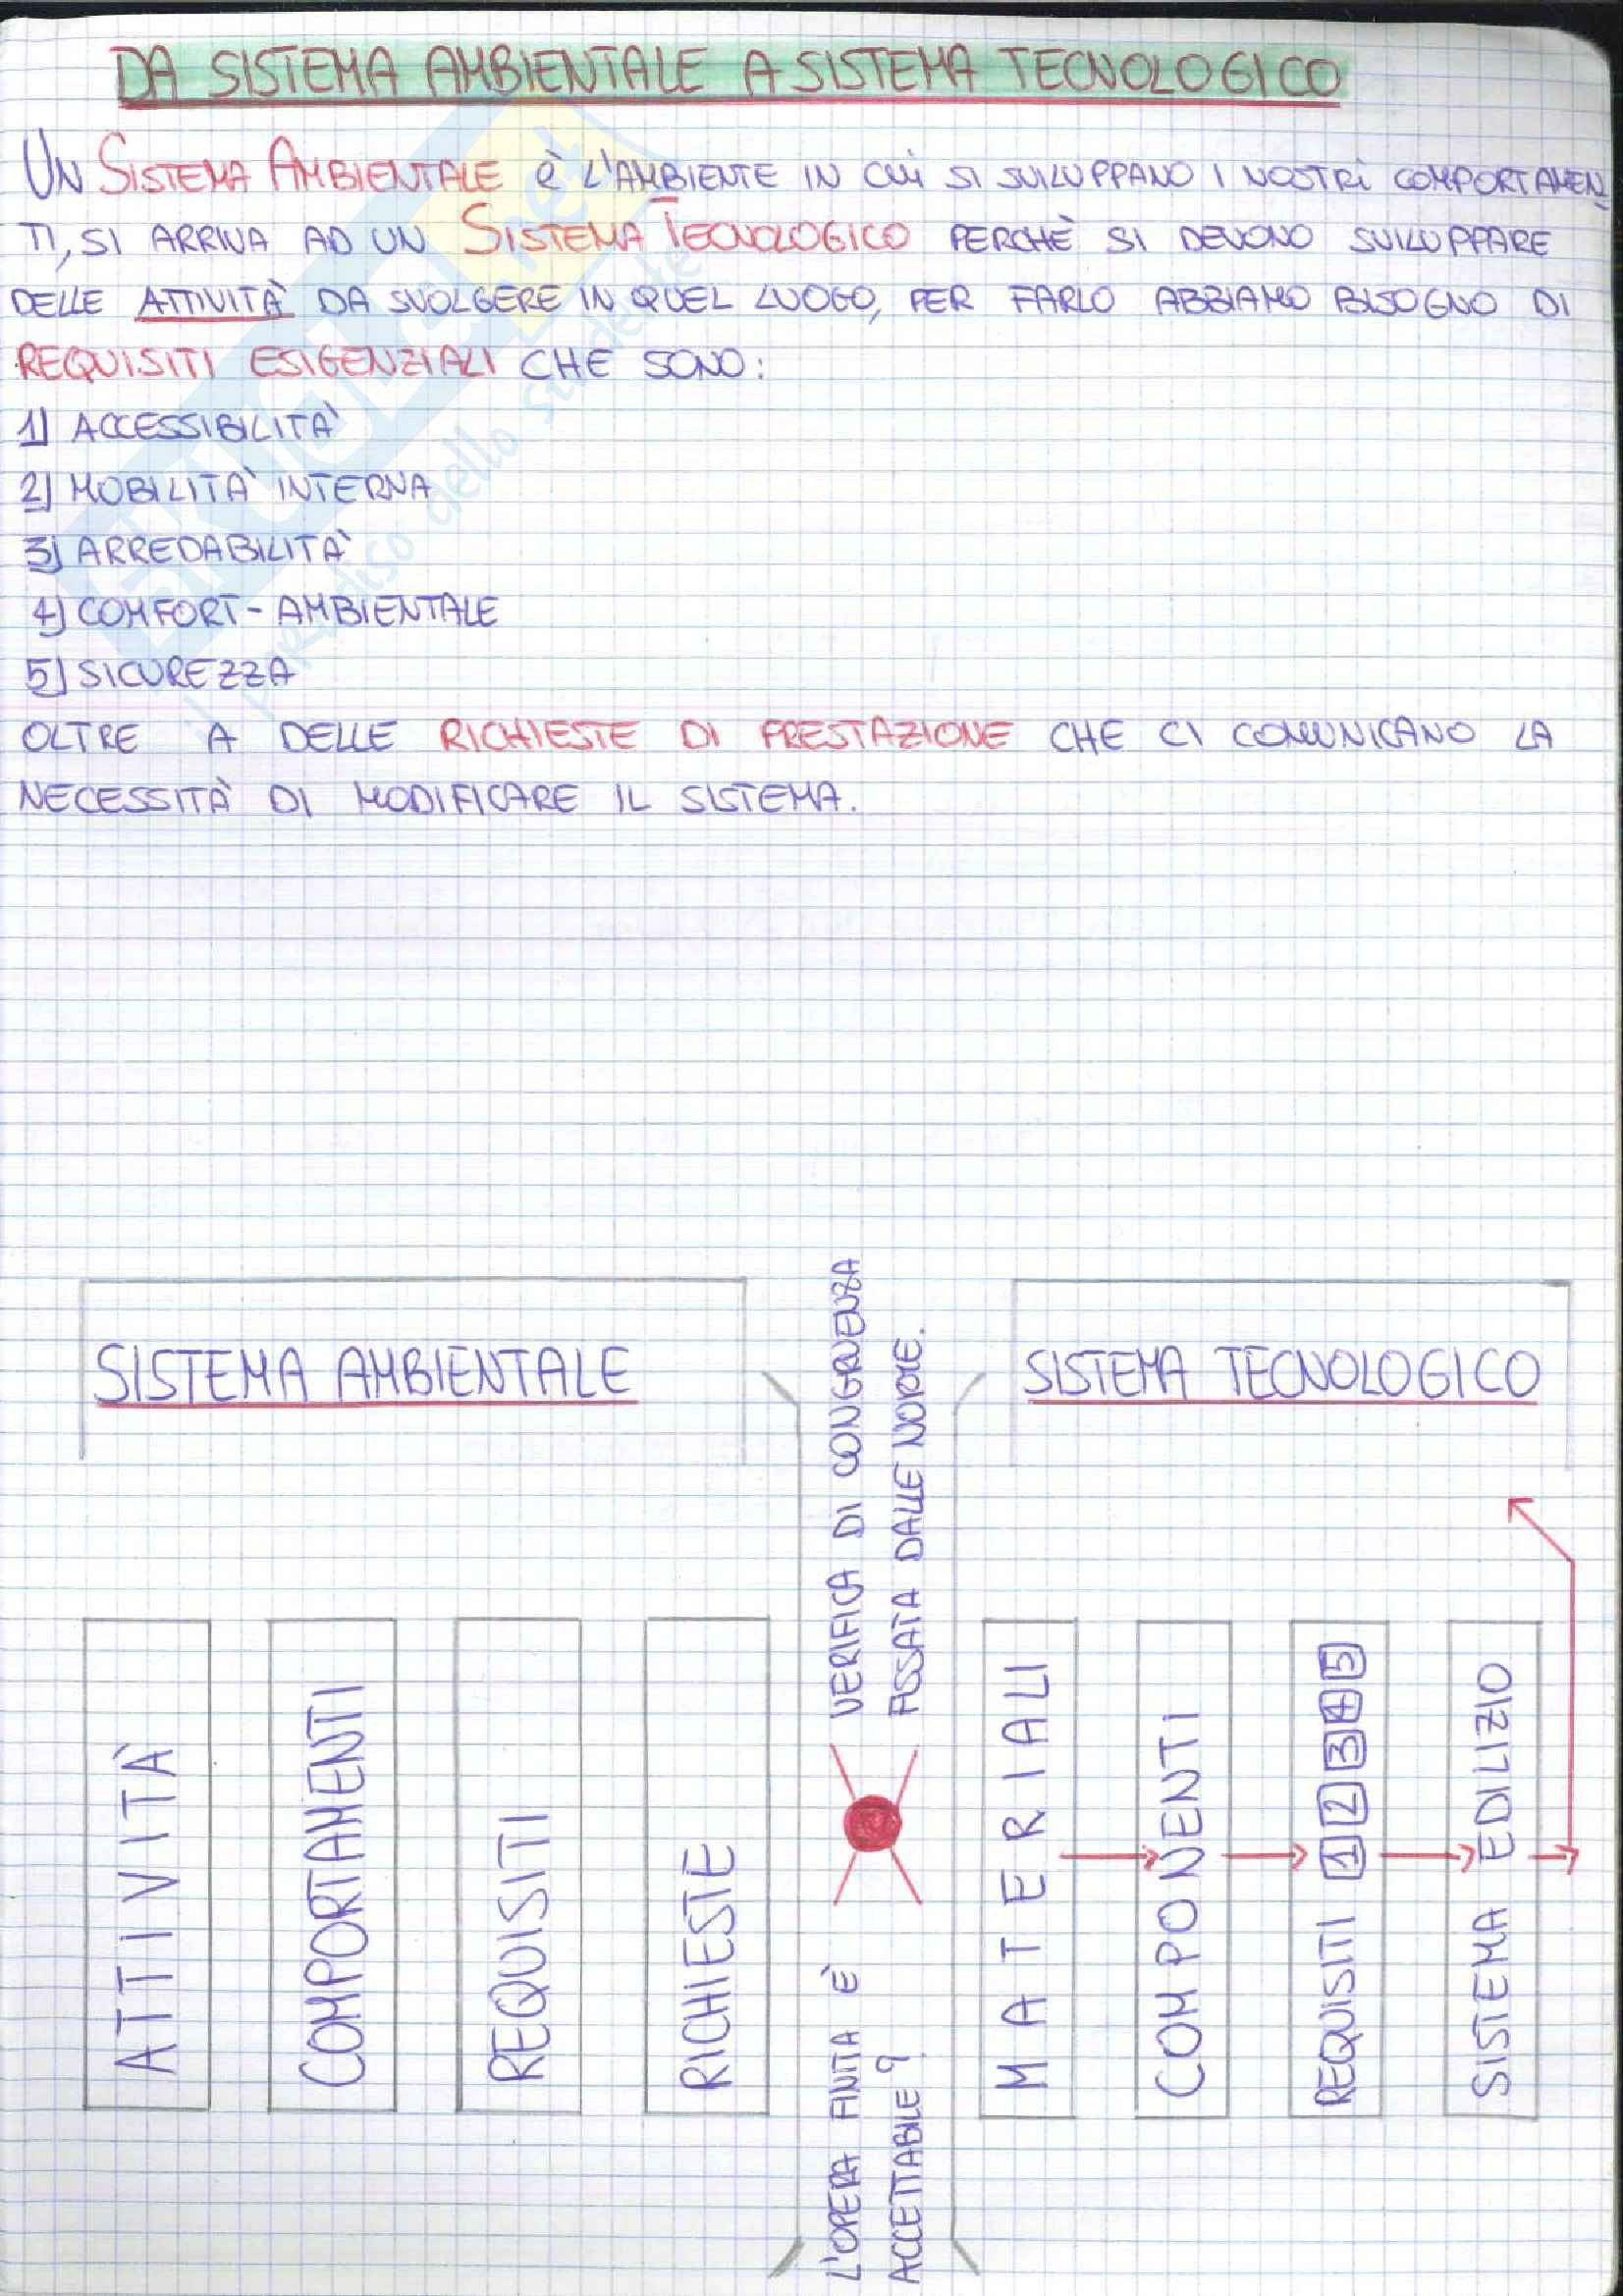 DA SISTEMA AMBIENTALE A SISTEMA TECNOLOGICO
UN SISTEMA AMBIENTALE È L'AMBIENTE IN CUI SI SVILUPPANO I NOSTRI COMPORTAMEN
TI, SI ARRIVA AD UN SISTEMA TECNOLOGICO PERCHÈ SI DEVONO SVILUPPARE
DELLE ATTIVITÀ DA SVOLGERE IN QUEL LUOGO, PER FARLO ABBIAMO BISOGNO DI
REQUISITI ESIGENZIALI CHE SONO:
1) ACCESSIBILITÀ
2) MOBILITÀ INTERNA
3) ARREDABILITÀ
4) COMFORT - AMBIENTALE
5) SICUREZZA
OLTRE A DELLE RICHIESTE DI PRESTAZIONE CHE CI COMUNICANO LA
NECESSITÀ DI MODIFICARE IL SISTEMA.
SKUOLA.net
il paradiso dello studente
SISTEMA AMBIENTALE
ATTIVITÀ
COMPORTAMENTI
REQUISITI
RICHIESTE
VERIFICA DI CONGRUENZA
FISSATA DALLE NORME.
L'OPERA FINITA È
ACCETTABILE?
SISTEMA TECNOLOGICO
MATERIALI
COMPONENTI
REQUISITI 1 2 3 4 5
SISTEMA EDILIZIO